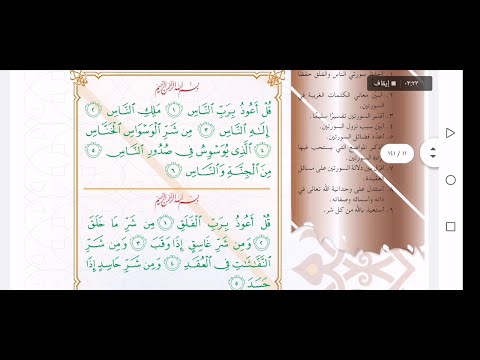 بسم الله الرحمن الرحيم
قُلْ أَعُوذُ بِرَبِّ النَّاسِ ١ مَلِكِ النَّاسِ ٢
إِلَٰهِ النَّاسِ ٣ مِن شَرِّ الْوَسْوَاسِ الْخَنَّاسِ
٤ الَّذِي يُوَسْوِسُ فِي صُدُورِ النَّاسِ ٥
مِنَ الْجِنَّةِ وَالنَّاسِ ٦
بسم الله الرحمن الرحيم
قُلْ أَعُوذُ بِرَبِّ الْفَلَقِ ١ مِن شَرِّ مَا خَلَقَ
٢ وَمِن شَرِّ غَاسِقٍ إِذَا وَقَبَ ٣ وَمِن شَرِّ
النَّفَّاثَاتِ فِي الْعُقَدِ ٤ وَمِن شَرِّ حَاسِدٍ إِذَا
حَسَدَ ٥
سورتي الناس والفلق حفظًا
٢. أبين معاني الكلمات الغريبة في
السورتين.
٣. أفسر السورتين تفسيرًا سليمًا.
٤. أبين سبب نزول السورتين.
٥. أعدد فضائل السورتين.
المواضع التي يستحب فيها
السورتين.
دلالة السورتين على مسائل
العقيدة.
٨. أستدل على وحدانية الله تعالى في
ذاته وأسمائه وصفاته.
٩. أستعيذ بالله من كل شر.
إيقاف ٠٣:٢٣
١١ / ١٤١